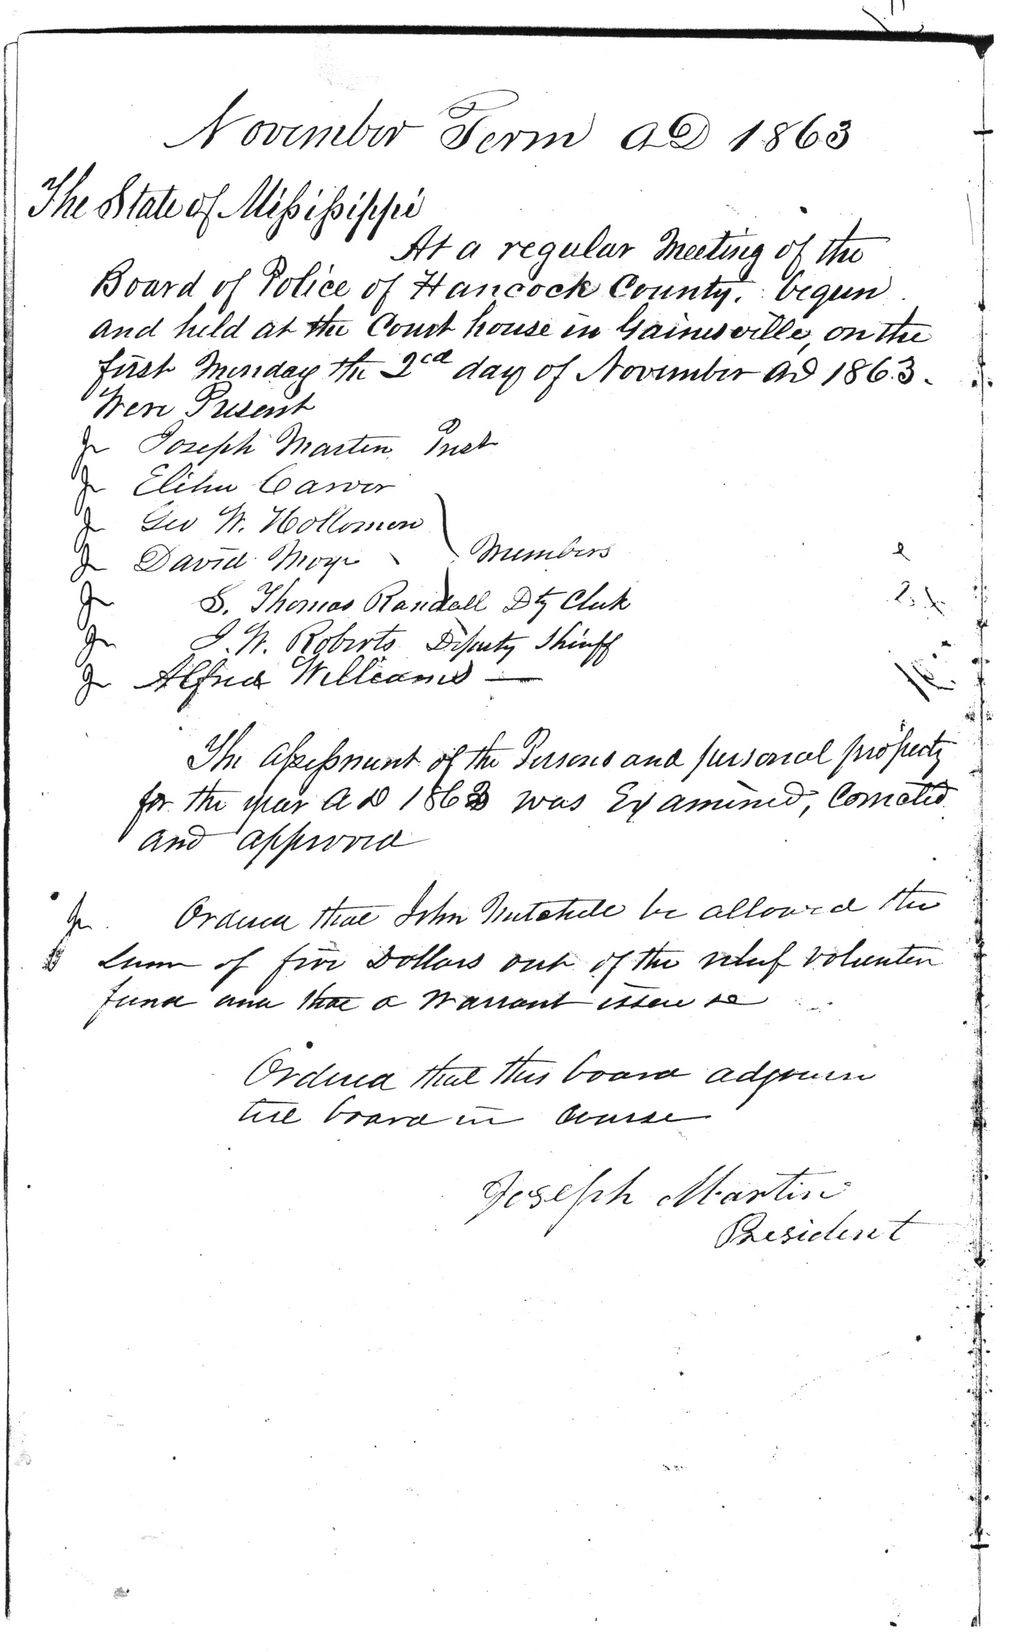 November Term AD 1863
The State of Mississippi
At a regular Meeting of the
Board of Police of Hancock County, begun
and held at the Court house in Gainesville, on the
first Monday the 2cd day of November AD 1863.
Were Present
Joseph Martin Prest
Elihu Carver
Geo W. Hollomon
David Moye Members
S. Thomas Randall Dty Clerk
J. W. Roberts Deputy Sheriff
Alfred Williams —
The assessment of the Persons and personal property
for the year AD 1863 was Examined, Corrected
and approved
Ordered that John Mitchell be allowed the
Sum of five Dollars out of the relief volunteer
fund and that a Warrant issue se
Ordered that this board adjourn
till board in Course
Joseph Martin
President